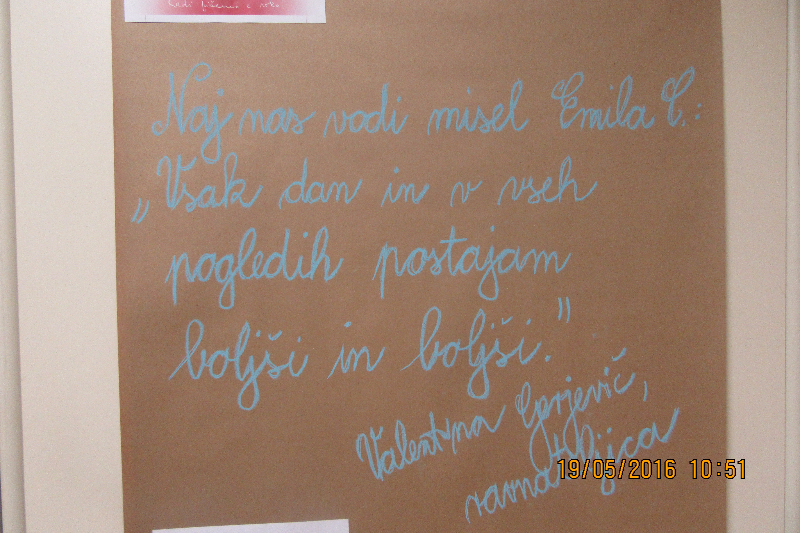 Naj nas vodi misel Emila C.:
„Vsak dan in v vseh
pogledih postajam
boljši in boljši."
Valentina
ravnateljica
19/05/2016 10:51